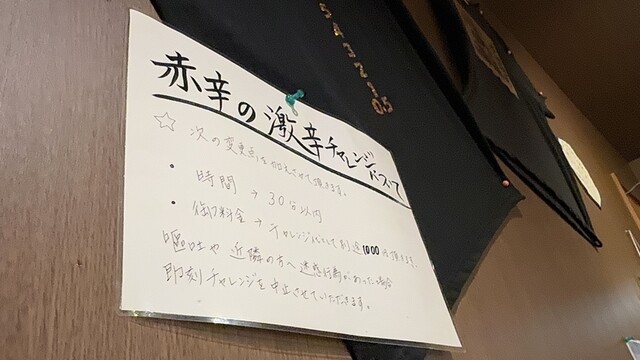 5 4 3 2 1 05
赤辛の激辛チャレンジについて
☆ 次の変更点を加えさせて頂きます。
・時間 → 30分以内
・御料金 → チャレンジ代として別途1000円頂きます。
嘔吐や近隣の方へ迷惑行為があった場合
即刻チャレンジを中止させていただきます。